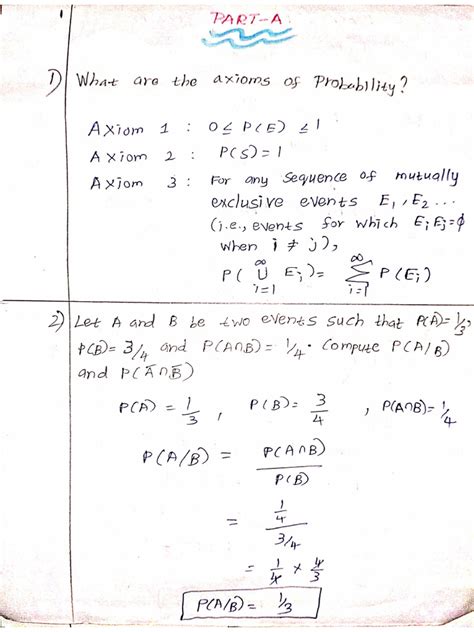 PART-A
1) What are the axioms of Probability?
Axiom 1 : 0 ≤ P(E) ≤ 1
Axiom 2 : P(S) = 1
Axiom 3 : For any sequence of mutually
exclusive events E₁, E₂ ...
(i.e., events for which EᵢEⱼ=ϕ
when i ≠ j),
P( ∞∪i=1 Eᵢ) = ∞∑i=1 P(Eᵢ)
2) Let A and B be two events such that P(A)=1/3,
P(B)= 3/4 and P(A∩B)= 1/4. Compute P(A/B)
and P(A̅∩B̅)
P(A) = 1/3 , P(B) = 3/4 , P(A∩B)= 1/4
P(A/B) = P(A∩B)/P(B)
= 1/4 / 3/4
= 1/4 × 4/3
P(A/B) = 1/3